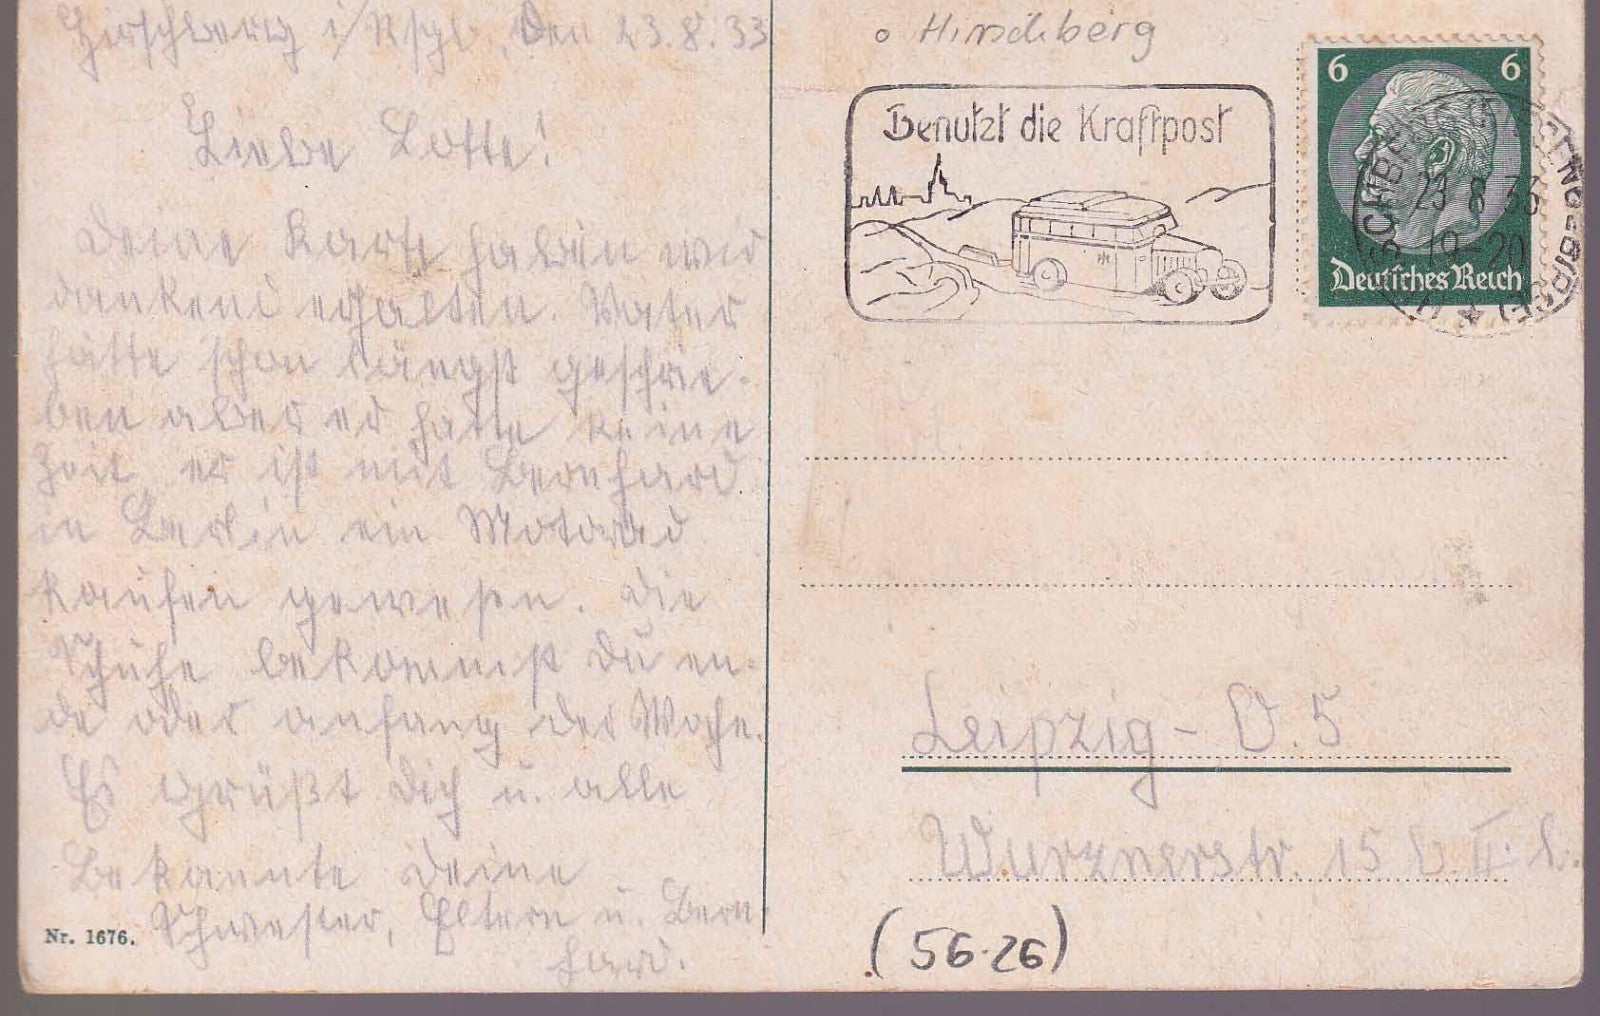 Hirschberg i/Rsgb., den 23.8.33
Liebe Lotte!
Deine Karte haben wir
dankend erhalten. Vater
hätte schon längst geschrie-
ben aber er hatte keine
Zeit, er ist mit Bernhard
in Berlin ein Motorrad
kaufen gewesen. Die
Schuhe bekommst Du en-
de oder anfang der Woche.
Es grüßt Dich u. alle
Bekannte Deine
Schwester, Eltern u. Bern-
hard.
Nr. 1676.
Hirschberg
Benutzt die Kraftpost
6 6
Deutsches Reich
HIRSCHBERG
23.8.33
19-20
Leipzig - O. 5
Wurznerstr. 15 b. II. l.
(56.26)